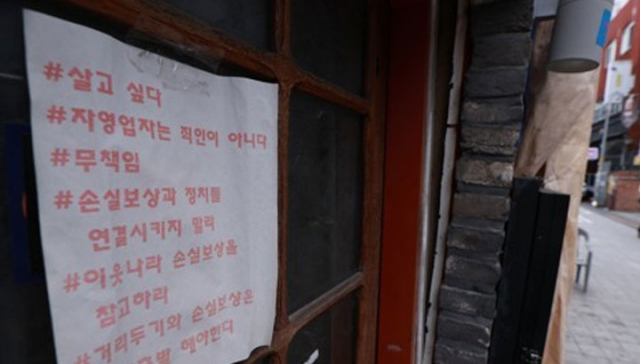 #살고 싶다
#자영업자는 죄인이 아니다
#무책임
#손실보상과 정치를
연결시키지 말라
#이웃나라 손실보상을
참고하라
#거리두기와 손실보상은
해야한다